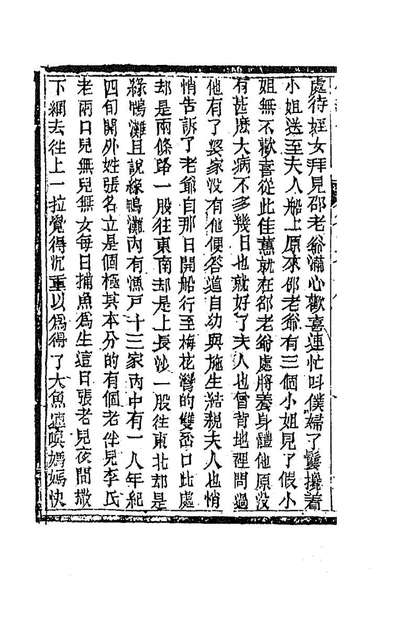 處待姪女拜見邵老爺滿心歡喜連忙叫僕婦丫鬟攙着
小姐送至夫人船上原來邵老爺有三個小姐見了假小
姐無不歡喜從此佳蕙就在邵老爺處將養身體他原沒
有甚麽大病不多幾日也就好了夫人也曾背地裡問過
他有了婆家沒有他便答道自幼與施生結親夫人也悄
悄告訴了老爺自那日開船行至梅花灣的雙岔口此處
却是兩條路一股往東南却是上長沙一股往東北却是
綠鴨灘且說綠鴨灘內有漁戸十三家內中有一人年紀
四旬開外姓張名立是個極其本分的有個老伴兒李氏
老兩口兒無兒無女每日捕魚爲生這日張老兒夜間撒
下網去往上一拉覺得沉重以爲得了大魚連喚媽媽快